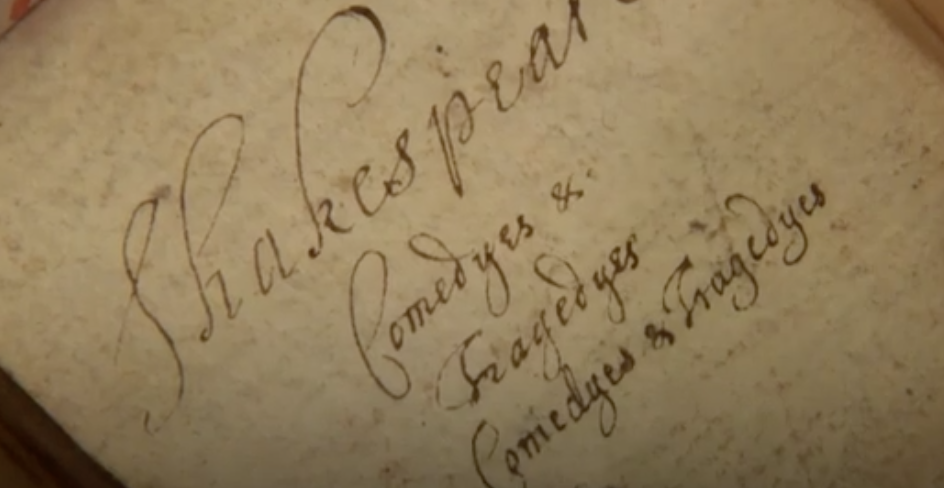 Shakespear
Comedyes &
Tragedyes
Comedyes & Tragedyes